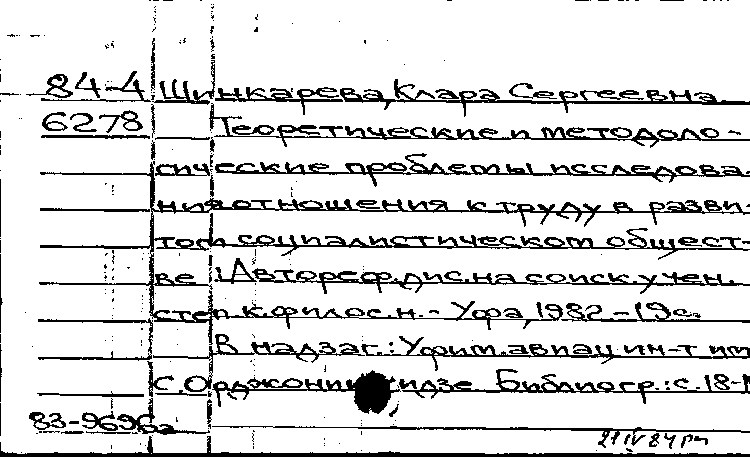 84-4 Шинкарева, Клара Сергеевна
6278 Теоретические и методоло-
гические проблемы исследова-
ния отношения к труду в разви-
том социалистическом общест-
ве : Автореф. дис. на соиск. учен.
степ. к. филос. н. - Уфа, 1982. - 19 с.
В надзаг.: Уфим. авиац. ин-т им.
С. Орджоникидзе. Библиогр.: с. 18-1
83-9696а
21 IV 84